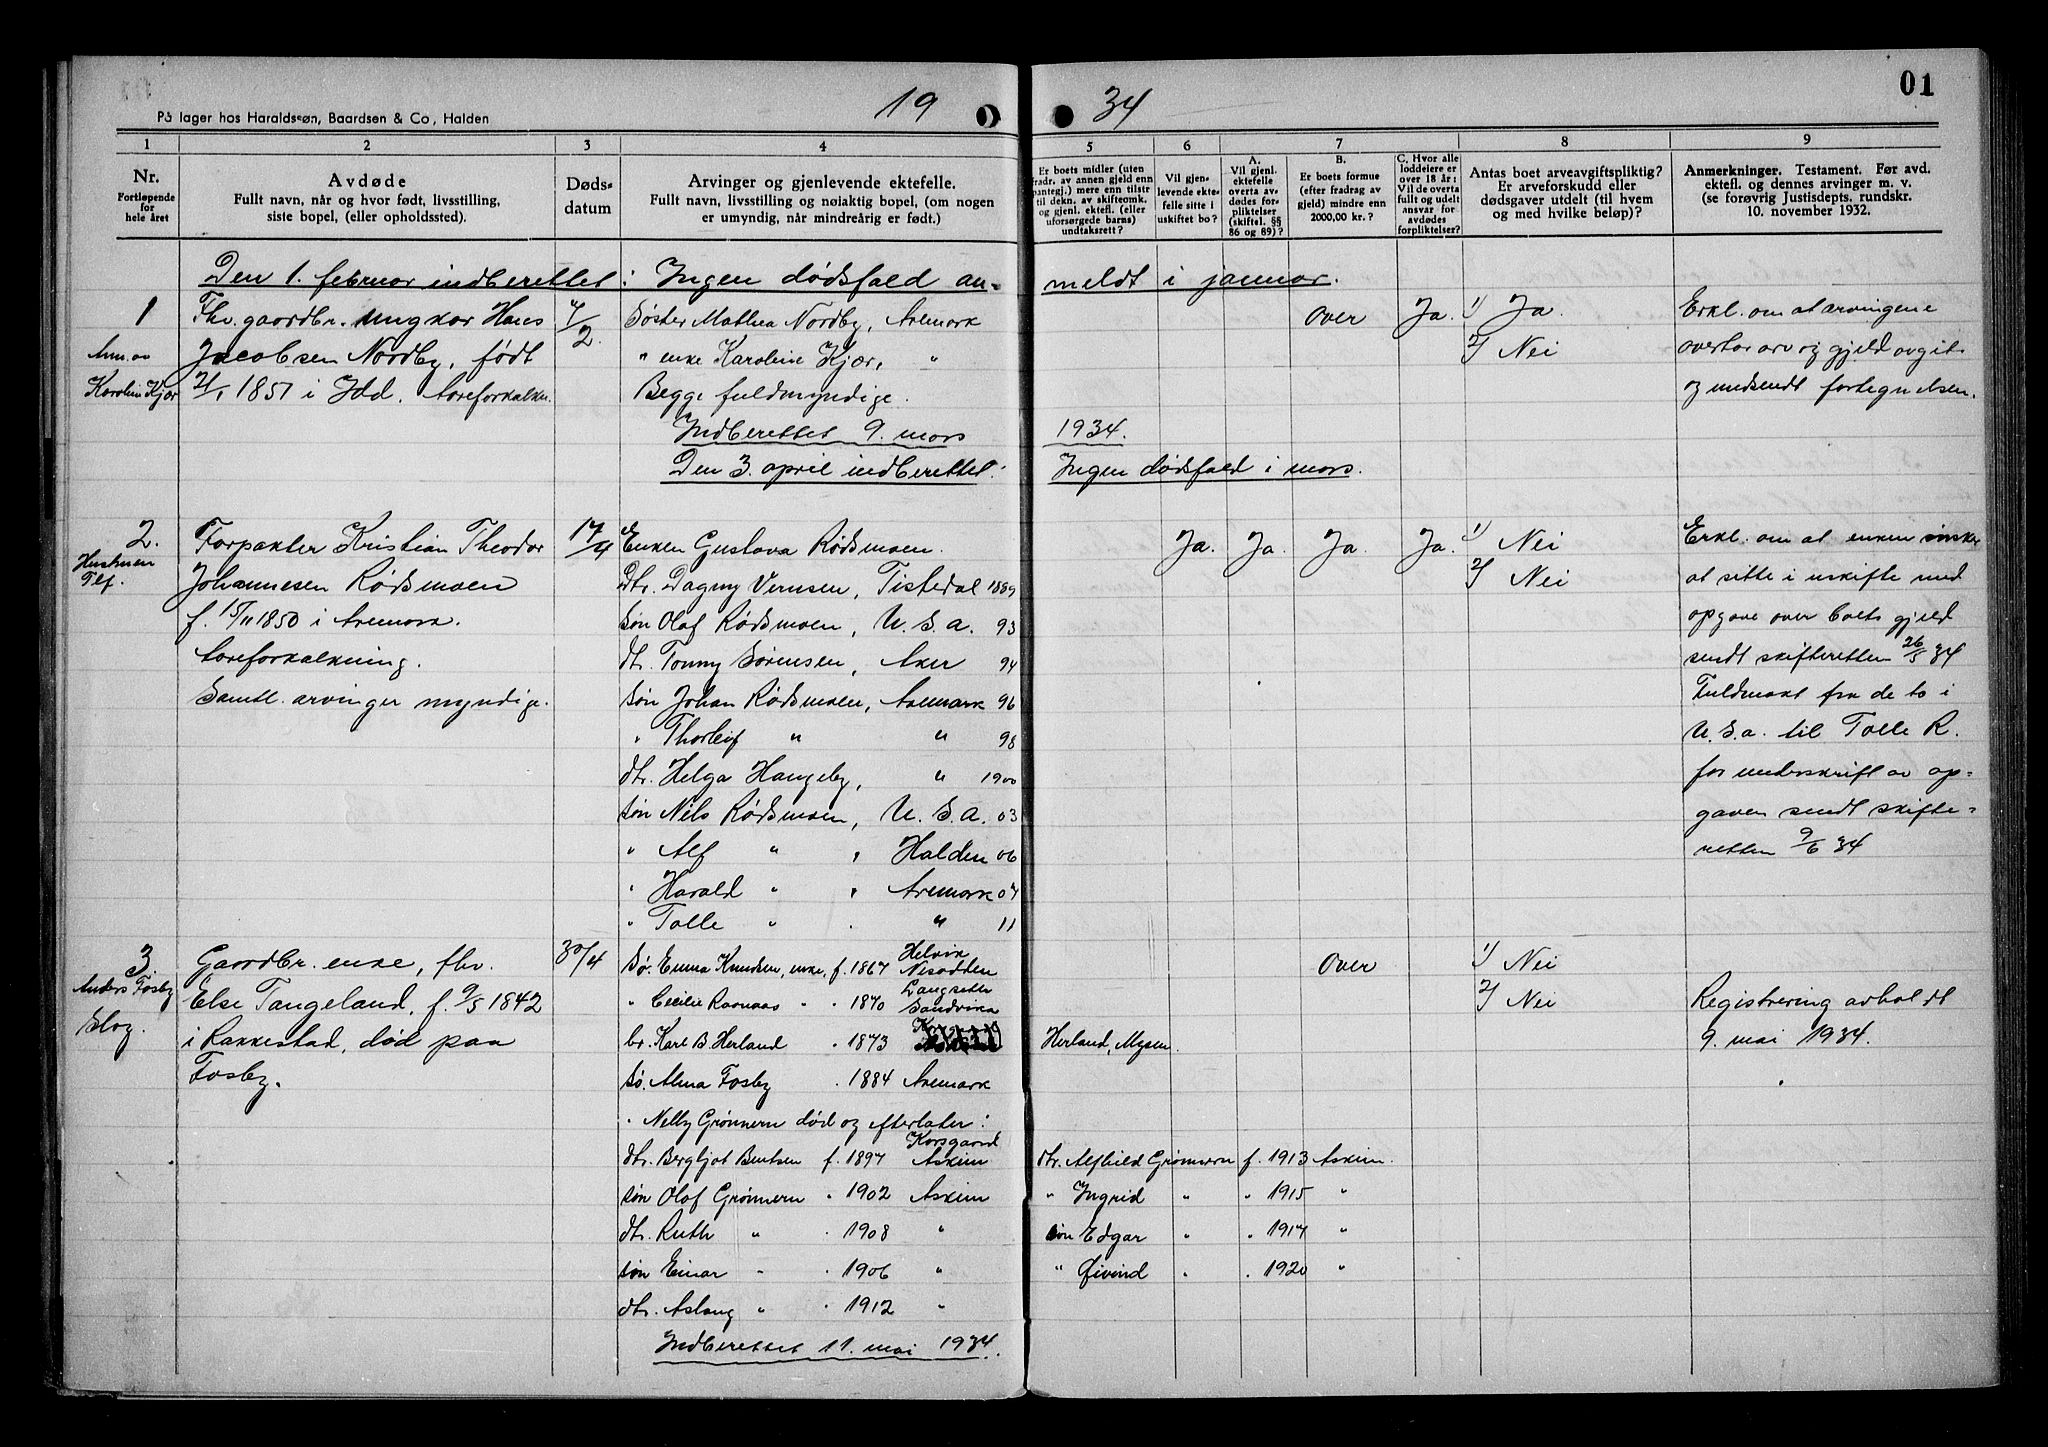 På lager hos Haraldssøn, Baardsen & Co, Halden
19 34
01
1 2 3 4 5 6 7 8 9
Nr.
Fortløpende for hele året
Avdøde
Fullt navn, når og hvor født, livsstilling,
siste bopel, (eller opholdssted).
Døds-
datum
Arvinger og gjenlevende ektefelle.
Fullt navn, livsstilling og nøiaktig bopel, (om nogen
er umyndig, når mindreårig er født.)
Er boets midler (uten
fradr. av annen gjeld enn
pantegj.) mere enn tilstr
til dekn. av skifteomk.
og gjenl. ektef. (eller
uforsørgede barns)
undtaksrett?
Vil gjen-
levende ekte-
felle sitte i
uskiftet bo?
A.
Vil gjenl.
ektefelle
overta av-
dødes for-
pliktelser
(skiftel. §§
86 og 89)?
B.
Er boets formue
(efter fradrag av
gjeld) mindre enn
2000,00 kr.?
C. Hvor alle
loddeiere er
over 18 år:
Vil de overta
fullt og udelt
ansvar for
avdødes
forpliktelser?
Antas boet arveavgiftspliktig?
Er arveforskudd eller
dødsgaver utdelt (til hvem
og med hvilke beløp)?
Anmerkninger. Testament. Før avd.
ektefl. og dennes arvinger m. v.
(se forøvrig Justisdepts. rundskr.
10. november 1932.
Den 1. februar indberettet: Ingen dødsfald an-
meldt i januar.
1
Anm. av
Karolin Kjær
Fhv. gaardbr. ungkar Hans
Jacobsen Nordby, født
2/1 1851 i Idd. Aareforkalkn.
4/2
Søster Mathea Nordby, Aremark
" enke Karoline Kjær, "
Begge fuldmyndige.
Over Ja. 1/ Ja.
2/ Nei
Erkl. om at arvingene
overtar arv og gjeld avgit
og undsendt fortegnelsen.
Indberettet 9. mars 1934.
Den 3. april indberettet: Ingen dødsfald i mars.
2.
Hustruen
Tlf.
Forpakter Kristian Theodor
Johannesen Rødsmoen
f. 15/11 1850 i Aremark.
Aareforkalkning.
Samtl. arvinger myndige.
17/4
Enken Gustava Rødsmoen.
Dtr. Dagny Vernsen, Tistedal 1889
Søn Olaf Rødsmoen, U. S. a. 93
dtr. Tonny Sørensen, Aker 94
søn Johan Rødsmoen, Aremark 96
" Thorleif " " 98
dtr. Helga Haugeby, " 1900
søn Nils Rødsmoen, U. S. A. 03
" Alf " , Halden 06
" Harald " , Aremark 07
" Tolle " . " 11
Ja. Ja. Ja. Ja. 1/ Nei
2/ Nei
Erkl. om at enken ønsker
at sitte i uskifte med
opgave over boets gjeld
sendt skifteretten 26/5 34
Fuldmakt fra de to i
U. S. a. til Tolle R.
for underskrift av op-
gaven sendt skifte-
retten 9/6 34
3
Anders Fosby
Gaardbr. enke, fhv.
Else Tangeland, f. 9/5 1842
i Rakkestad, død paa
Fosby.
30/4
Sø. Emma Knudsen, enke, f. 1867 Helvik Nesodden
" Cecilie " . 1870 Langsetter Sandvika
br. Karl B. Herland . 1873
Herland, Mysen.
Sø. Alma Fosby . 1884 Aremark
. Nelly Grønnern død og efterlater:
dtr. Bergljot Bentsen f. 1897 Korsgaard Askim
søn Olaf Grønnern " 1902 Askim
dtr. Ruth " . 1908 "
søn Einar " . 1906 "
dtr. Aslaug " . 1912 "
dtr. Alfhild Grønnern f. 1913 Askim.
" Ingrid " " 1915 "
søn Edgar " " 1917 "
" Øivind " . 1920 "
Over 1/ Nei
2/ Nei
Registrering avholdt
9. mai 1934.
Indberettet 11. mai 1934.